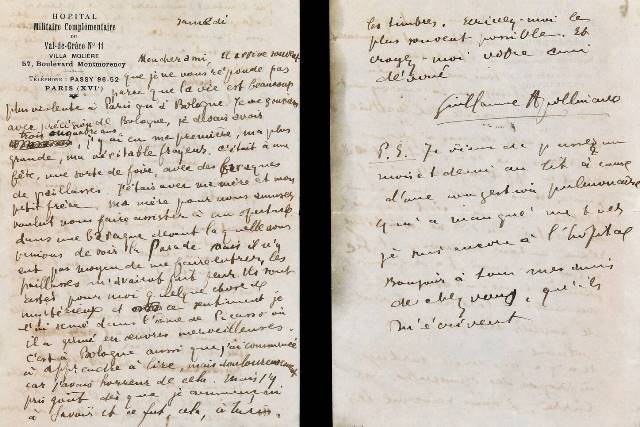 HOPITAL
Militaire Complémentaire
DU
Val-de-Grâce Nº 11
VILLA MOLIÈRE
57, Boulevard Montmorency
TÉLÉPHONE : PASSY 96-52
PARIS (XVIᵉ)
samedi
Mon cher ami, Il arrive souvent
que je ne vous réponde pas
parce que la vie est beaucoup
plus violente à Paris qu'à Bologne. Je me souviens
avec précision de Bologne, je devais avoir
trois ou quatre ans
j'y ai eu ma première, ma plus
grande, ma véritable frayeur. C'était à une
fête, une sorte de foire, avec des baraques
de paillasses. J'étais avec ma mère et mon
petit frère. Ma mère pour nous amuser
voulut nous faire assister à un spectacle
dans une baraque devant laquelle nous
venions de voir la Parade mais il n'y
eut pas moyen de me faire entrer, les
paillasses m'avaient fait peur. Ils sont
restés pour moi quelque chose de
mystérieux et ce sentiment je
l'ai semé dans l'âme de Picasso où
il a germé en œuvres merveilleuses.
C'est à Bologne aussi que j'ai commencé
à apprendre à lire, mais douloureusement
car j'avais horreur de cela. Mais j'y
pris goût dès que je commençai
à savoir et ce fut, cela, à
les timbres. Ecrivez-moi le
plus souvent possible. Et
croyez-moi votre ami
dévoué
Guillaume Apollinaire
P.S. Je viens de passer un
mois et demi au lit à cause
d'une congestion pulmonaire
qui a manqué me tuer
je suis encore à l'hôpital
Bonjour à tous mes amis
de chez vous, qu'ils
m'écrivent